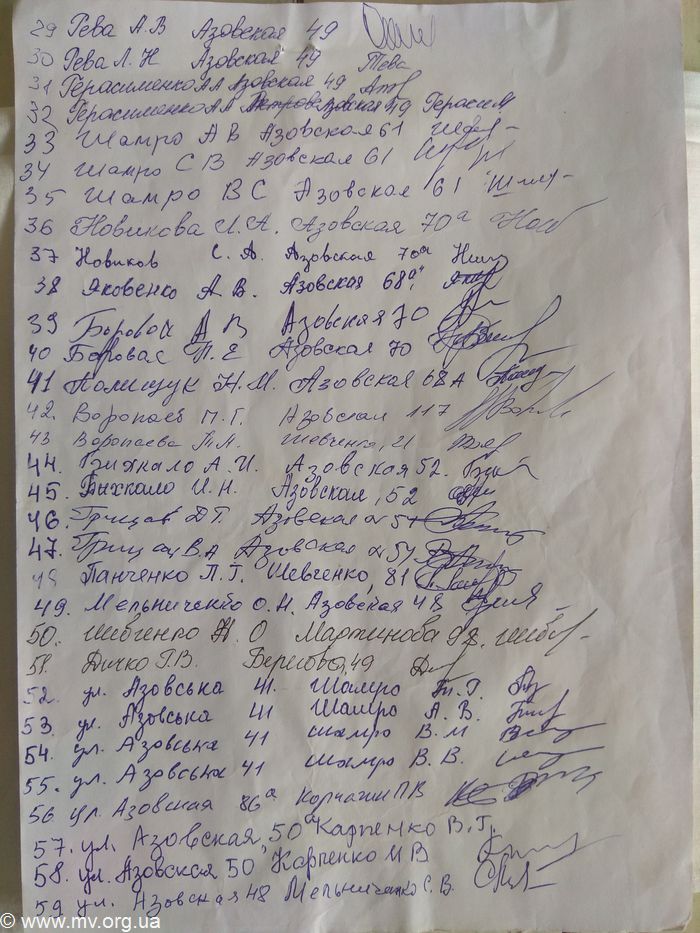 29 Рева А.В Азовская 49
30 Рева Л.Н Азовская 49 Рева
31 Герасименко АЛ Азовская 49
32 Герасименко Азовская 49 Герасим
33 Шамро А В Азовская 61
34 Шамро С В Азовская 61
35 Шамро В С Азовская 61
36 Новикова И.А. Азовская 70а
37 Новиков С. А. Азовская 70а
38 Яковенко А. В. Азовская 68"а"
39 Боровой А В Азовская 70
40 П. Е Азовская 70
41 Полищук Н.М. Азовская 68А
42. Воропаев П.Г. Азовская 117
43 Воропаева Т.А. Шевченко, 21
44. А.И. Азовская 52.
45. И.Н. Азовская, 52
46. Грицай Д.Г. Азовская 51
47. Грицай В.А Азовская 51
48 Панченко Л.Г. Шевченко, 81
49. Мельниченко О.Н. Азовская 48
50. Шевченко Н. О Мартинова
51. Дичко Г.В. 49
52. ул. Азовська 41. Шамро Т.Г.
53. ул. Азовська 41 Шамро А. В.
54. ул. Азовська 41 Шамро В. М
55. ул. Азовська 41 Шамро В. В.
56 ул. Азовская 86а ПВ
57. ул. Азовская, 50 Карпенко В.Г.
58. ул. Азовская 50 Карпенко И В
59 ул. Азовская 48 Мельниченко С. В.
© www.mv.org.ua